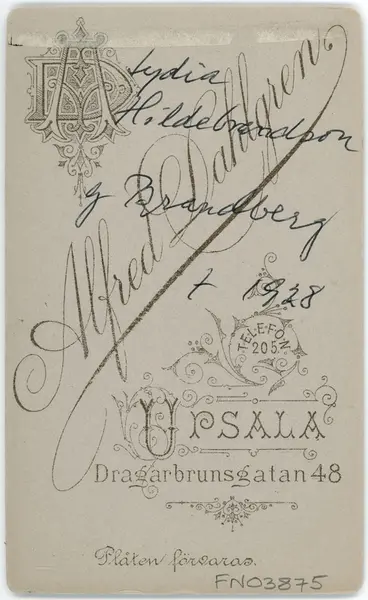 AD
Lydia
Hildebrandson
g Brandberg
† 1928
Alfred Dahlgren
TELEFON
205.
UPSALA
Dragarbrunsgatan 48
Plåten förvaras.
FNO3875